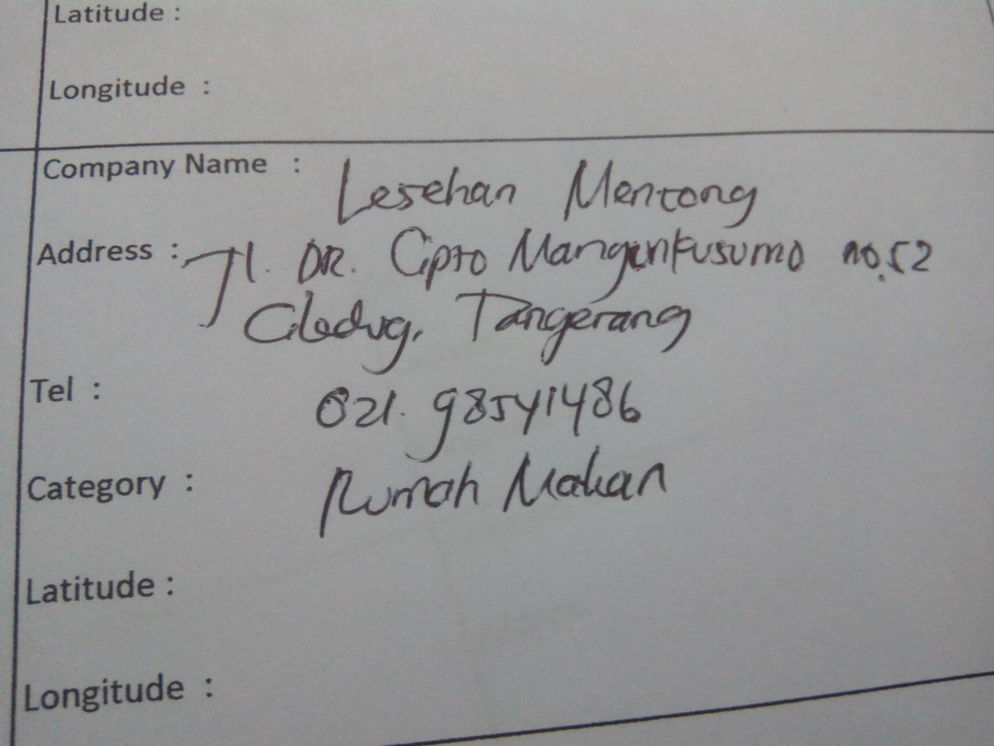 Latitude :
Longitude :
Company Name : Lesehan Mentong
Address : Jl. DR. Cipto Mangunkusumo no.52
Ciledug, Tangerang
Tel : 021. 98541486
Category : Rumah Makan
Latitude :
Longitude :